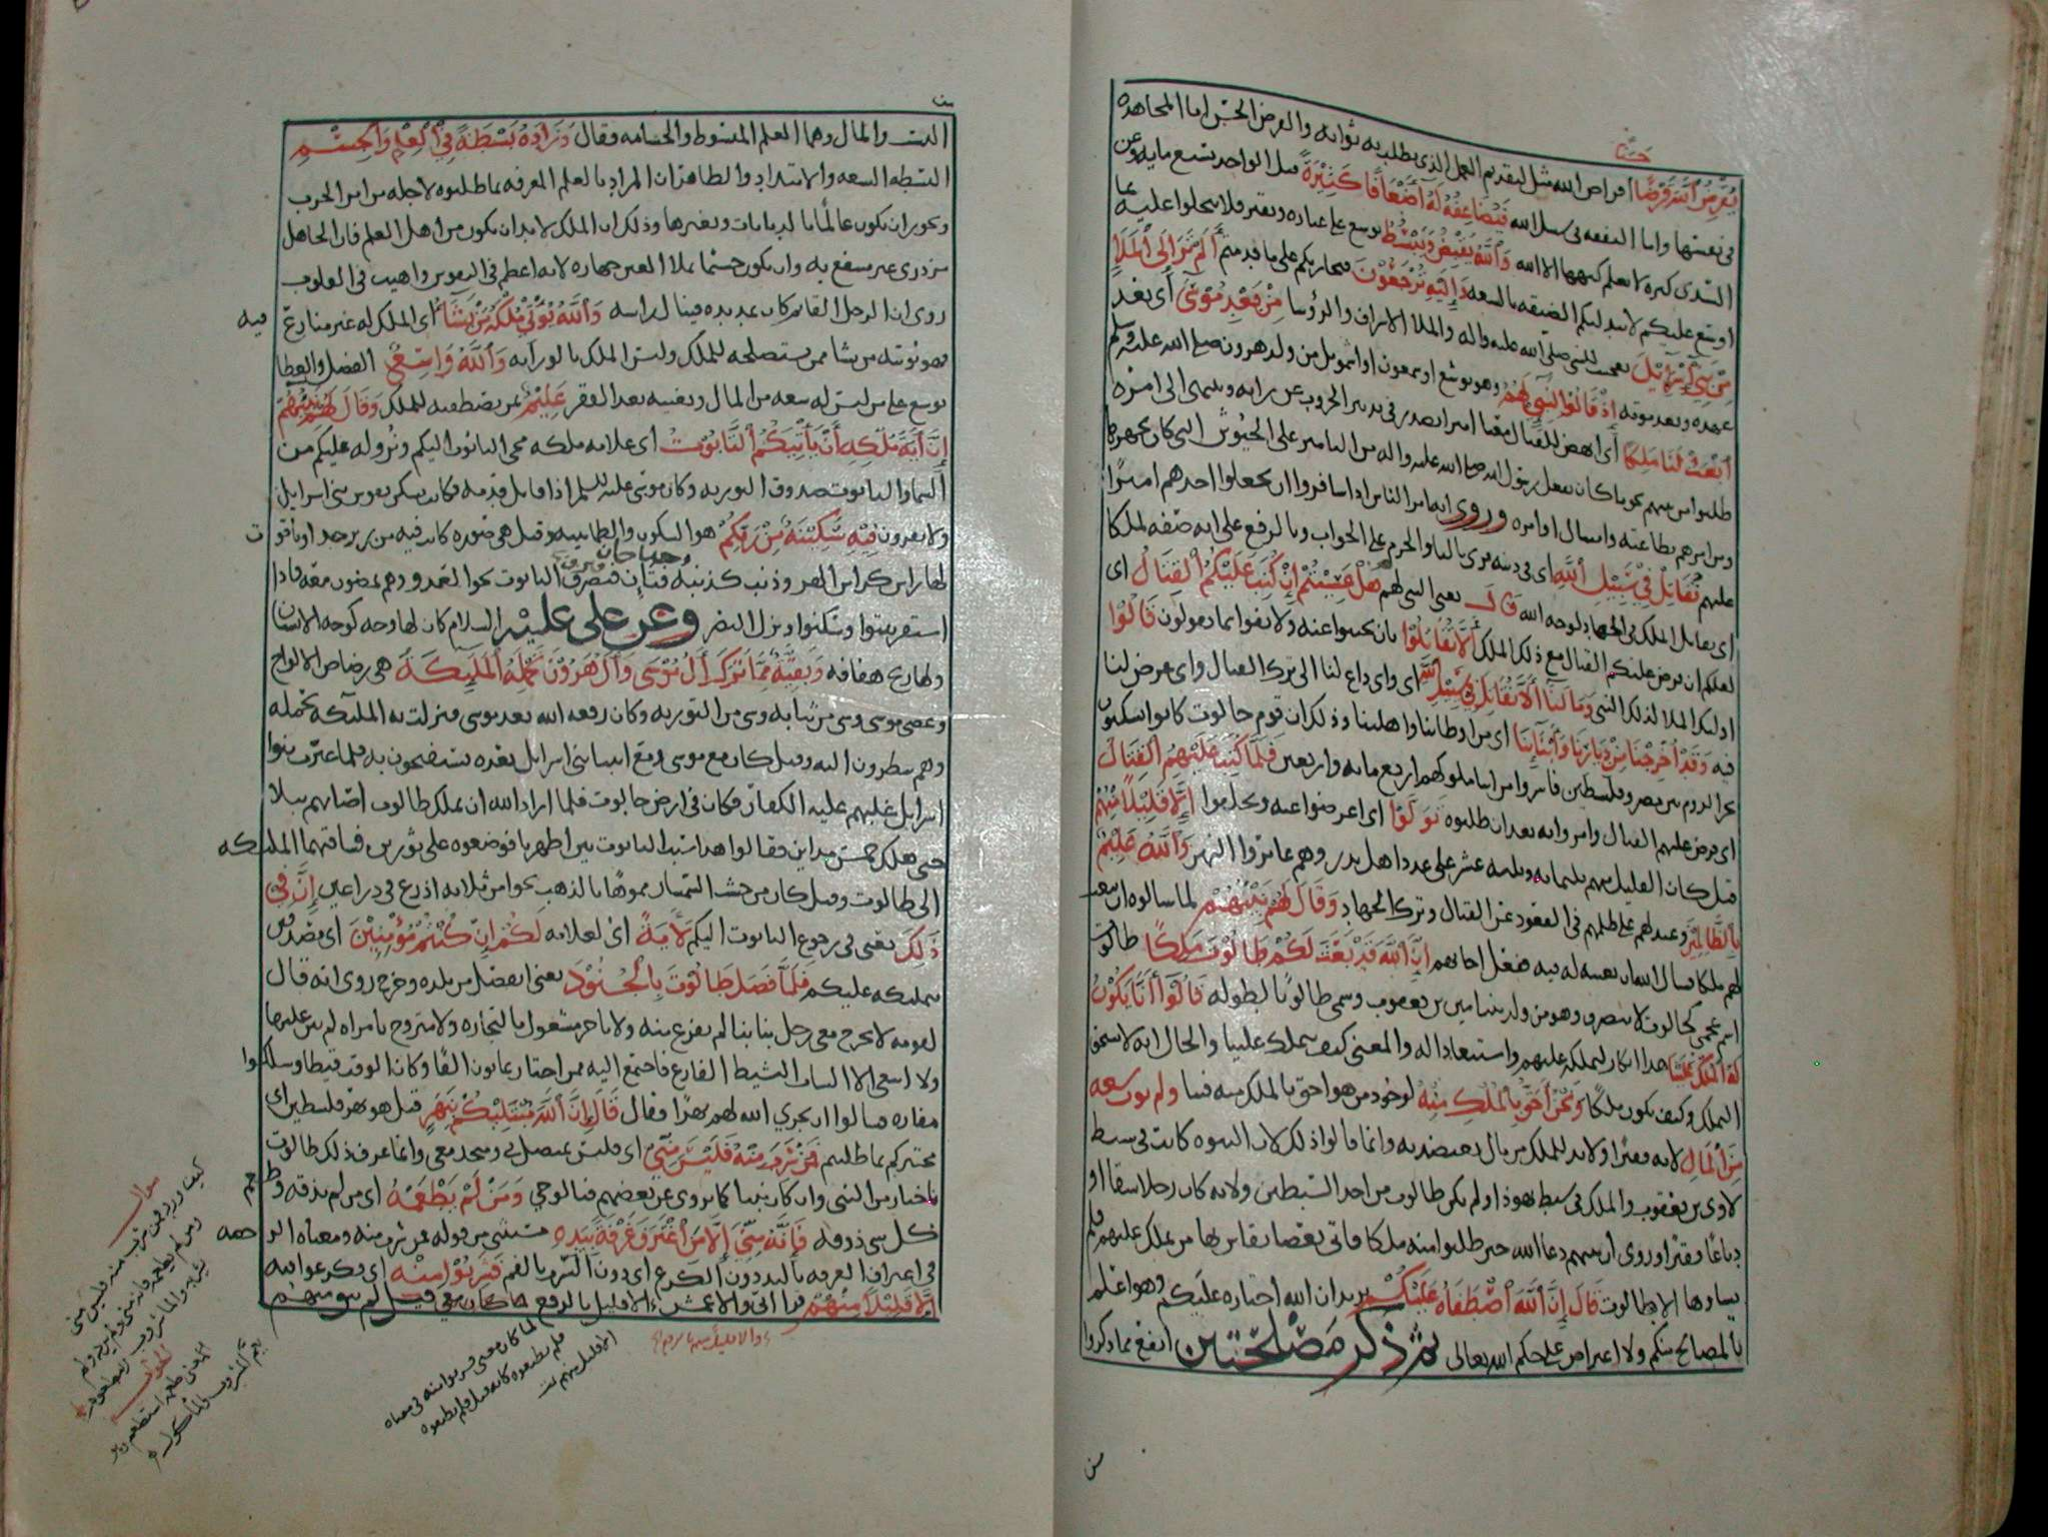 حسنا
يقرض الله قرضا اقراض الله مثل لتقديم العمل الذي يطلب به ثوابه والقرض الحسن اما المجاهده
في نفسها واما النفقه في سبيل الله فيضاعفه له أضعافا كثيرة قيل الواحد بسبع مايه وعن
السدي كثيره لا يعلم كنهها الا الله والله يقبض ويبسط يوسع على عباده ويقتر فلا تبخلوا عليه بما
اوسع عليكم لا يبدلكم الضيقه بالسعه وإليه ترجعون فيجازيكم على ما قدمتم ألم تر إلى الملأ
من بني إسرائيل تعجيب للنبي صلى الله عليه واله والملا الاشراف والرؤسا من بعد موسى أي بعد
عهده وبعد موته إذ قالوا لنبي لهم وهو يوشع او شمعون او اشمويل من ولد هرون صلى الله عليه وسلم
أبعث لنا ملكا أي انهض للقتال معنا اميرا نصدر في تدبير الحروب عن رايه وننتهي الى امره
طلبوا من نبيهم نحو ما كان يفعل رسول الله صلى الله عليه واله من التامير على الجيوش التي كان يجهزها
ومن امرهم بطاعته وامتثال اوامره وروي انه امر الناس اذا سافروا ان يجعلوا احدهم اميرا
عليهم نقاتل في سبيل الله اي في دينه قرئ بالنون والجزم على الجواب وبالرفع على انه صفه لملكا
اي يقاتل الملك في الجهاد لوجه الله قال يعني النبي لهم هل عسيتم إن كتب عليكم القتال اي
لعلكم ان فرض عليكم القتال مع ذلك الملك ألا تقاتلوا بان تجبنوا عنه ولا تفوا بما تقولون قالوا
اوليك الملا لذلك النبي وما لنا ألا نقاتل في سبيل الله اي واي داع لنا الى ترك القتال واي غرض لنا
فيه وقد أخرجنا من ديارنا وأبنائنا اي من اوطاننا واهلينا وذلك ان قوم جالوت كانوا يسكنون
بحر الروم بين مصر وفلسطين فاسروا من ابنا ملوكهم اربع مايه واربعين فلما كتب عليهم القتال
اي فرض عليهم القتال وامروا به بعد ان طلبوه تولوا اي اعرضوا عنه وتخلفوا إلا قليلا منهم
قيل كان القليل منهم ثلثمايه وثلثه عشر على عدد اهل بدر وهم عابروا النهر والله عليم
بالظالمين وعيد لهم على ظلمهم في القعود عن القتال وترك الجهاد وقال لهم نبيهم لما سالوه ان يبعث
لهم ملكا إن الله قد بعث لكم طالوت ملكا طالوت
اسم عجمي كجالوت لا ينصرف وهو من ولد بنيامين بن يعقوب وسمي طالوتا لطوله قالوا أنا يكون
له الملك علينا هذا انكار لتملكه عليهم واستبعادا له والمعنى كيف يتملك علينا والحال انه لا يستحق
التملك وكيف يكون ملكا ونحن أحق بالملك منه لوجود من هو احق بالملك منه فينا ولم يؤت سعه
من المال لانه فقيرا ولابد للملك من مال يعتضد به وانما قالوا ذلك لان النبوه كانت في سبط
لاوى بن يعقوب والملك في سبط يهوذا ولم يكن طالوت من احد السبطين ولانه كان رجلا سقا او
دباغا وفقيرا وروي ان نبيهم دعا الله حين طلبوا منه ملكا فاتى بعصا يقاس بها من يملك عليهم فلم
يساوها الا طالوت قال إن الله أصطفاه عليكم يريد ان الله اختاره عليكم وهو اعلم
بالمصالح منكم ولا اعتراض على حكم الله تعالى ثم ذكر مصلحتين انفع مما ذكروا
من
النسب والمال وهما العلم المبسوط والجسامه فقال وزاده بسطة في العلم والجسم
البسطه السعه والامتداد والظاهر ان المراد بالعلم المعرفه بما طلبوه لاجله من امر الحرب
ويجوز ان يكون عالما بالديانات وبغيرها وذلك ان الملك لابد ان يكون من اهل العلم فان الجاهل
مزدرى غير منتفع به وان يكون جسيما يملا العين جهاره لانه اعظم في النفوس واهيب في القلوب
روي ان الرجل القايم كان يمد يده فينال راسه والله يؤتي ملكه من يشاء اي الملك له غير منازع فيه
فهو يوتيه من يشا ممن يستصلحه للملك وليس الملك بالوراثه والله واسع الفضل والعطا
يوسع على من ليس له سعه من المال ويغنيه بعد الفقر عليم بمن يصطفيه للملك وقال لهم نبيهم
إن آية ملكه أن يأتيكم التابوت اي علامه ملكه مجي التابوت اليكم ونزوله عليكم من
السما والتابوت صدوق التوريه وكان موسى عليه السلم اذا قاتل قدمه فكانت تسكن نفوس بني اسرايل
ولا يفرون فيه سكينة من ربكم هو السكون والطمانينه وقيل هي صوره كانت فيه من زبرجد او ياقوت
لها راس كراس الهر وذنب كذنبه وجناحان التابوت نحو العدو وهم يمضون معه فاذا
استقر ثبتوا وسكنوا ونزل النصر وعن علي عليه السلام كان لها وجه كوجه الانسان
ولها ريح هفافه وبقية مما ترك آل موسى وآل هرون تحمله الملئكة هي رضاض الالواح
وعصى موسى وشي من ثيابه وشي من التوريه وكان رفعه الله بعد موسى فنزلت به المليكه تحمله
وهم ينظرون اليه وقيل كان مع موسى ومع انبيا بني اسرايل بعده يستفتحون به فلما غيرت بنوا
اسرايل غلبهم عليه الكفار فكان في ارض جالوت فلما اراد الله ان يملك طالوت اصابهم ببلا
حتى هلك خمس مداين فقالوا هذا بسبب التابوت بين اظهرنا فوضعوه على ثورين فساقهما المليكه
الى طالوت وقيل كان من خشب الشمشار مموها بالذهب نحوا من ثلاثه اذرع في ذراعين إن في
ذلك يعني في رجوع التابوت اليكم لآية اي لعلامه لكم إن كنتم مؤمنين اي مصدقين
بتمليكه عليكم فلما فصل طالوت بالجنود يعني انفصل من بلده وخرج روي انه قال
لقومه لا يخرج معي رجل بنا بنا لم يفرغ منه ولا تاجر مشغول بالتجاره ولا متزوج بامراه لم يبن عليها
ولا ابتغي الا الشاب النشيط الفارغ فاجتمع اليه ممن اختار ثمانون الفا وكان الوقت قيظا وسلكوا
مفازه فسالوا ان يجري الله لهم نهرا فقال قال إن الله مبتليكم بنهر قيل هو نهر فلسطين اي
مختبركم بما طلبتم فمن شرب منه فليس مني اي فليس بمتصل بي ومتحد معي وانما عرف ذلك طالوت
باخبار من النبي وان كان نبيا كما يروى عن بعضهم فبالوحي ومن لم يطعمه اي من لم يذقه وطعم
كل شي ذوقه فإنه مني إلا من أغترف غرفة بيده مستثنى من قوله فمن شرب منه ومعناه الرخصه
في اغتراف الغرفه باليد دون الكرع اي دون الشرب بالفم فشربوا منه اي فكرعوا فيه
إلا قليلا منهم قرا ابي والاعمش الا قليل بالرفع
لما كان معنى فشربوا منه في معناه
فلم يطيعوه كانه قيل فلم يطيعوه
الا قليل منهم تمت
سوال
كيف ورد فمن شرب منه فليس مني
ومن لم يطعمه فانه مني
الجواب